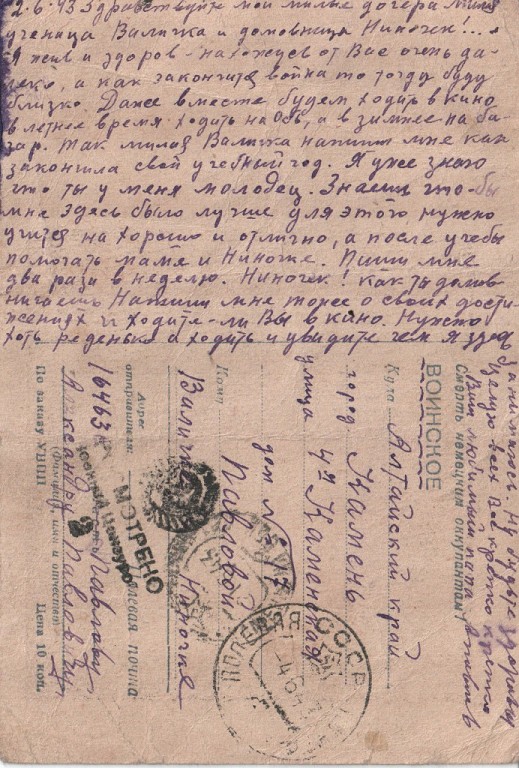 2.6.43 Здравствуйте мои милые дочера милая
ученица Валичка и домовница Ниночек!...
Я жив и здоров - нахожусь от Вас очень да-
леко, а как закончится война то тогда буду
близко. Даже вместе будем ходить в кино
в летнее время ходить на Обь, а в зимнее на ба-
зар. Так милая Валичка напиши мне как
закончила свой учебный год. Я уже знаю
что ты у меня молодец. Знаешь что-бы
мне здесь было лучше для этого нужно
учится на хорошо и отлично, а после учебы
помогать маме и Ниночке. Пиши мне
два раза в неделю. Ниночек! как ты домов-
ничаешь Напиши мне тоже о своих дости-
жениях и ходите-ли Вы в кино. Нужно
хоть реденько а ходить и увидите чем я здесь
занимаюсь. Ну будьте здоровы
целую всех Вас крепко крепко
Ваш любимый папа
Смерть немецким оккупантам!
ВОИНСКОЕ
Куда Алтайский край
город Камень
улица 4я Каменская
дом № 17
Кому Павловой
Валичке Ниночке
Адрес
отправителя:
полевая почта
16463
Павлову
Александру Павловичу
(Фамилия, имя и отчество)
По заказу УВПП Цена 10 коп.
ПРОСМОТРЕНО
Военной Цензурой
ПОЛЕВАЯ
СССР